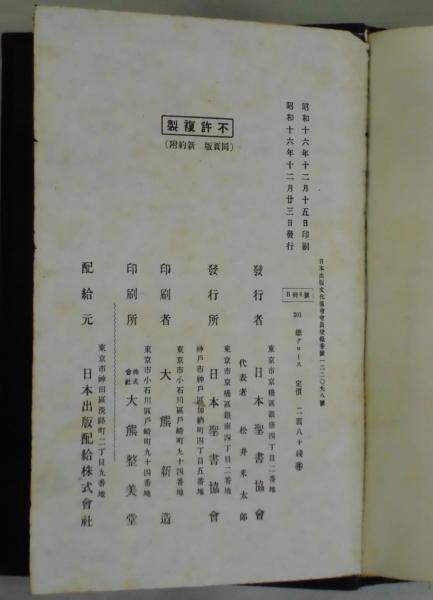 昭和十六年十二月十五日印刷
昭和十六年十二月廿三日發行
不許複製
(同頁版 新約附)
日本出版文化協會會員登録番號一二二〇九八號
B列6號
201 總クロース 定價 二圓八十錢 停
東京市京橋區銀座四丁目二番地
發行者 日本聖書協會
代表者 松井米太郎
東京市京橋區銀座四丁目二番地
發行所 日本聖書協會
神戸市神戸區加納町四丁目五番地
東京市小石川區戸崎町九十四番地
印刷者 大熊新造
東京市小石川區戸崎町九十四番地
印刷所 株式會社 大熊整美堂
東京市神田區淡路町二丁目九番地
配給元 日本出版配給株式會社